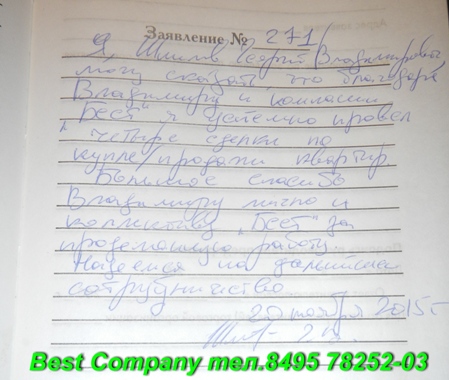 Заявление № 271
Я, Шилов Георгий Владимирович
могу сказать, что благодаря
Владимиру и компании
"Бест" я успешно провел
четыре сделки по
купле/продажи квартир
Большое спасибо
Владимиру лично и
коллективу "Бест" за
проделанную работу
Надеемся на дальнейшее
сотрудничество
20 ноября 2015 г
Best Company тел.8495 78252-03